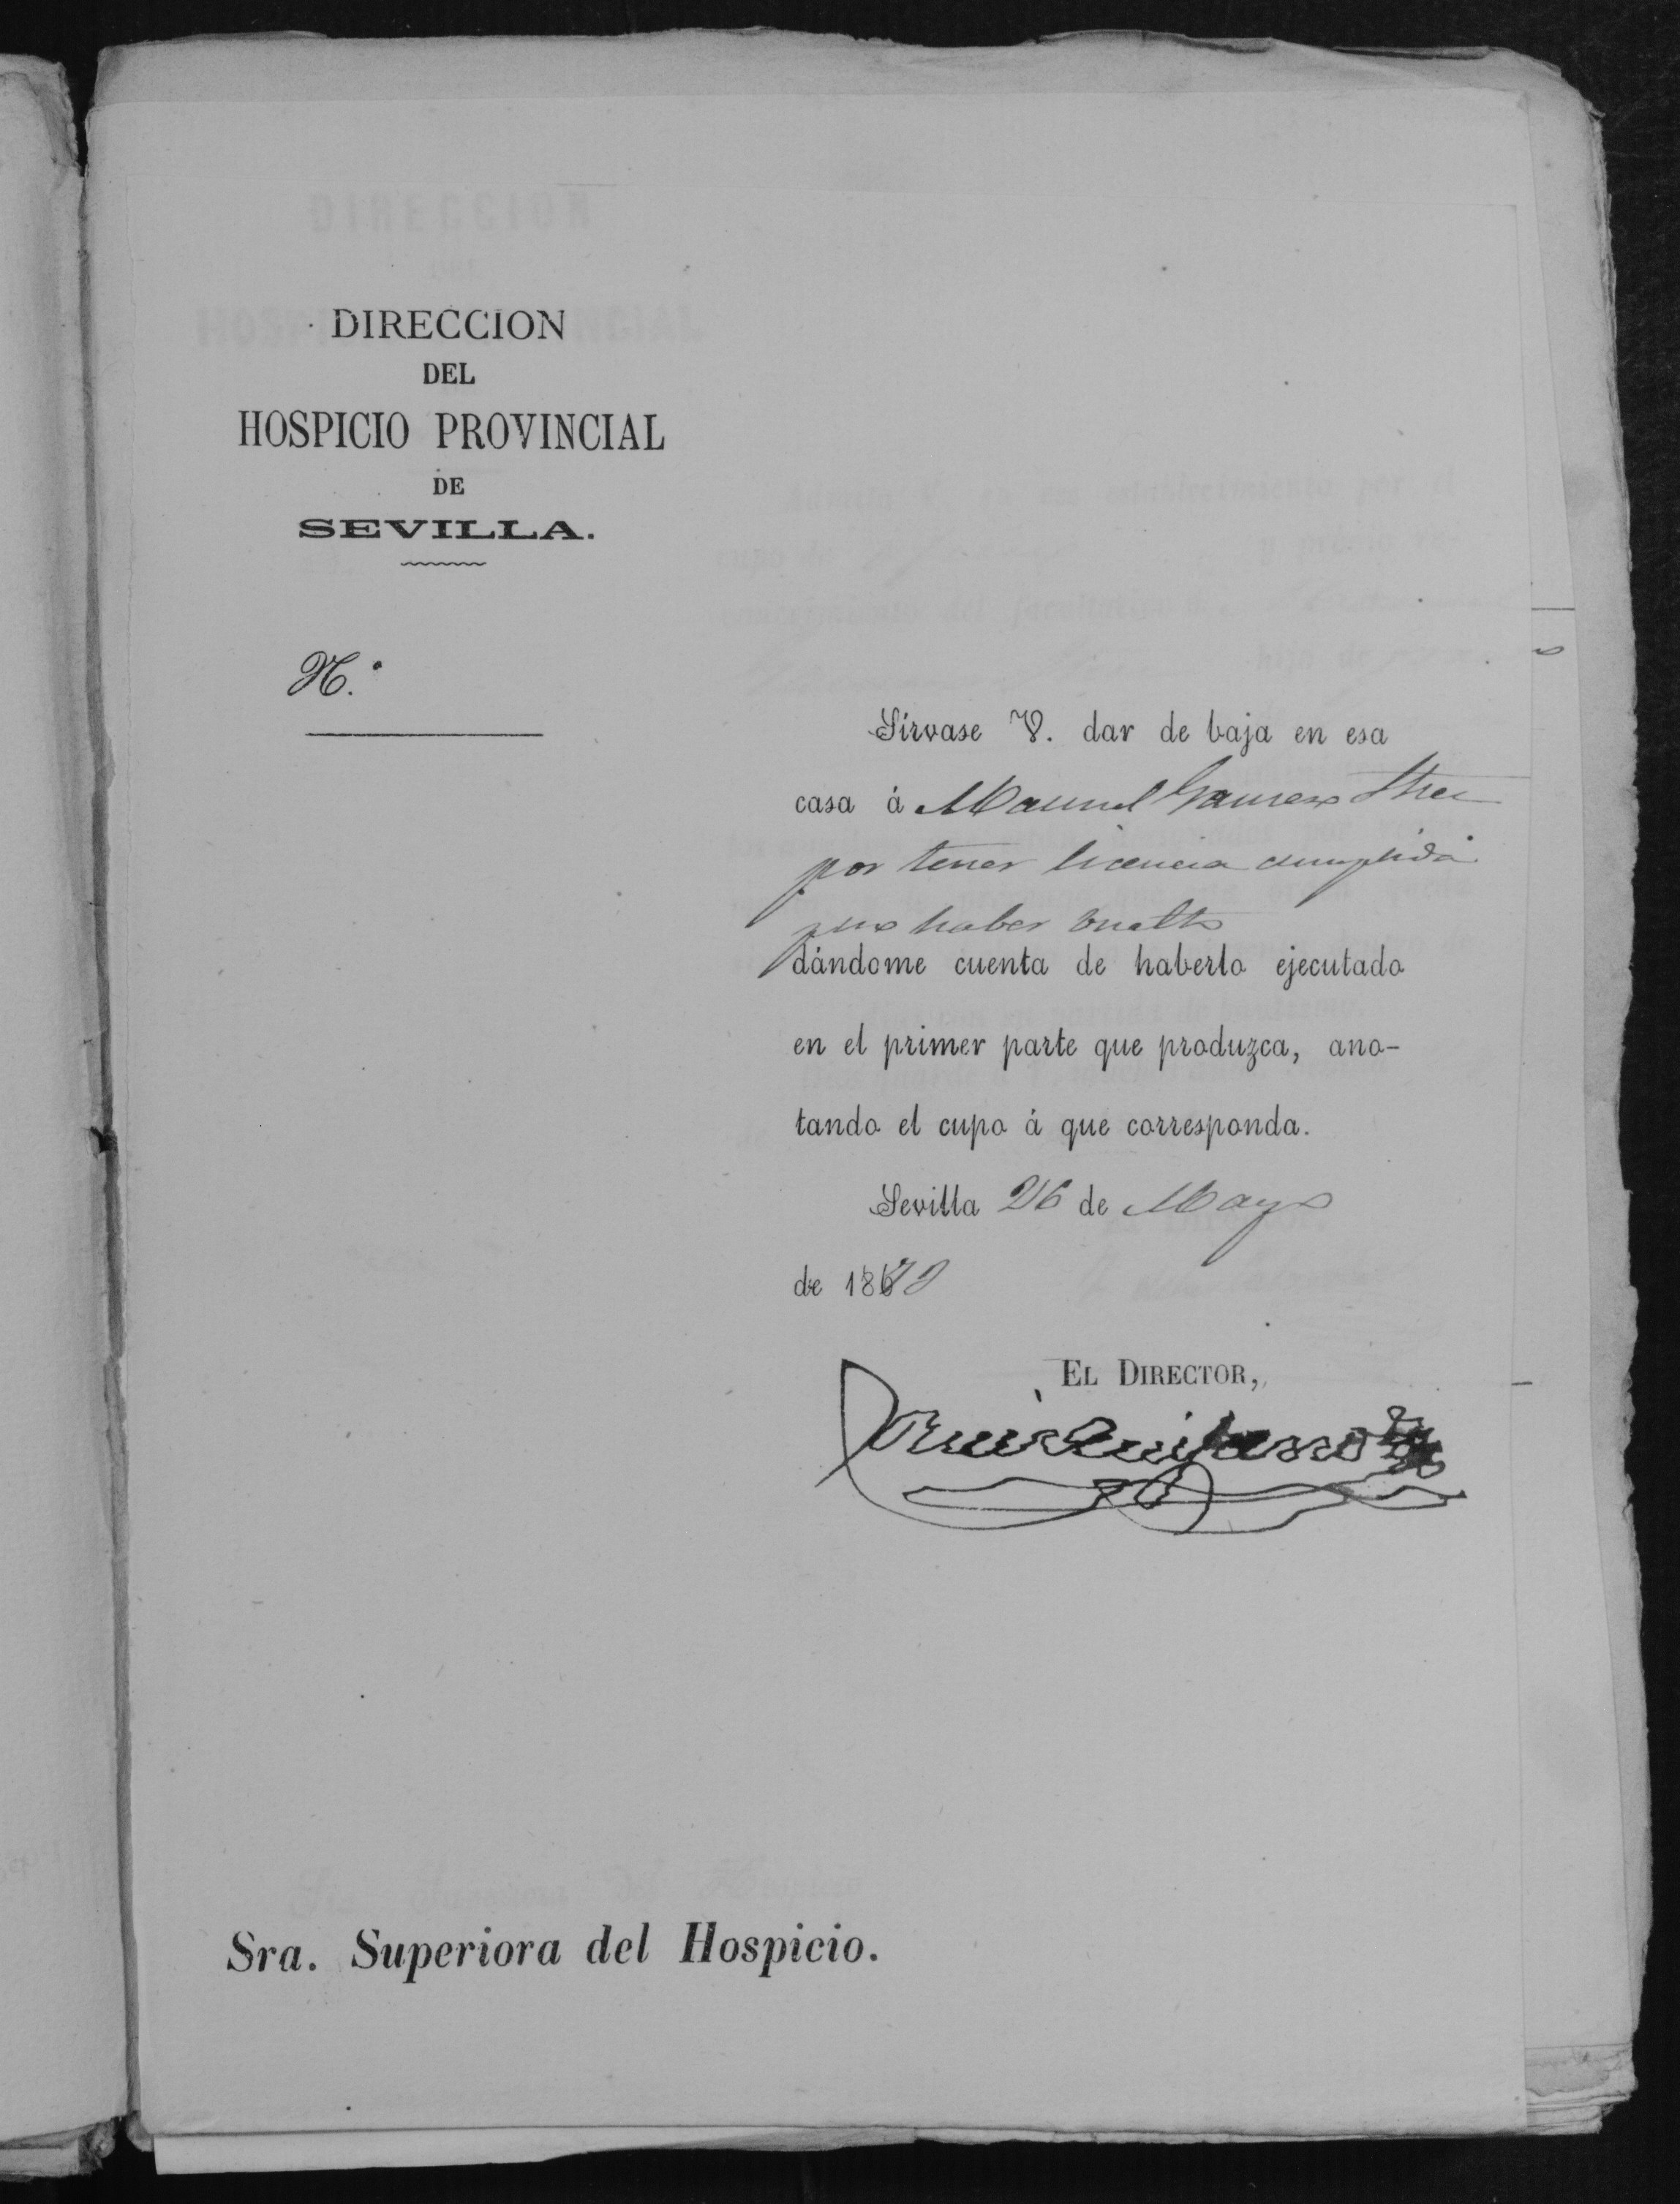 DIRECCION
DEL
HOSPICIO PROVINCIAL
DE
SEVILLA.
N.º
Sírvase V. dar de baja en esa
casa á Manuel
por tener licencia cumplida
haber vuelto
dándome cuenta de haberlo ejecutado
en el primer parte que produzca, ano-
tando el cupo á que corresponda.
Sevilla 26 de Mayo
de 187
EL DIRECTOR,
Sra. Superiora del Hospicio.